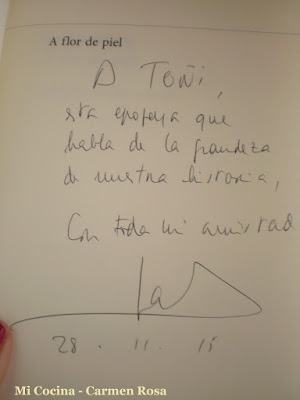 A flor de piel
A TOÑI,
esta epopeya que
habla de la grandeza
de nuestra historia,
Con toda mi amistad
28 . 11 . 15
Mi Cocina - Carmen Rosa